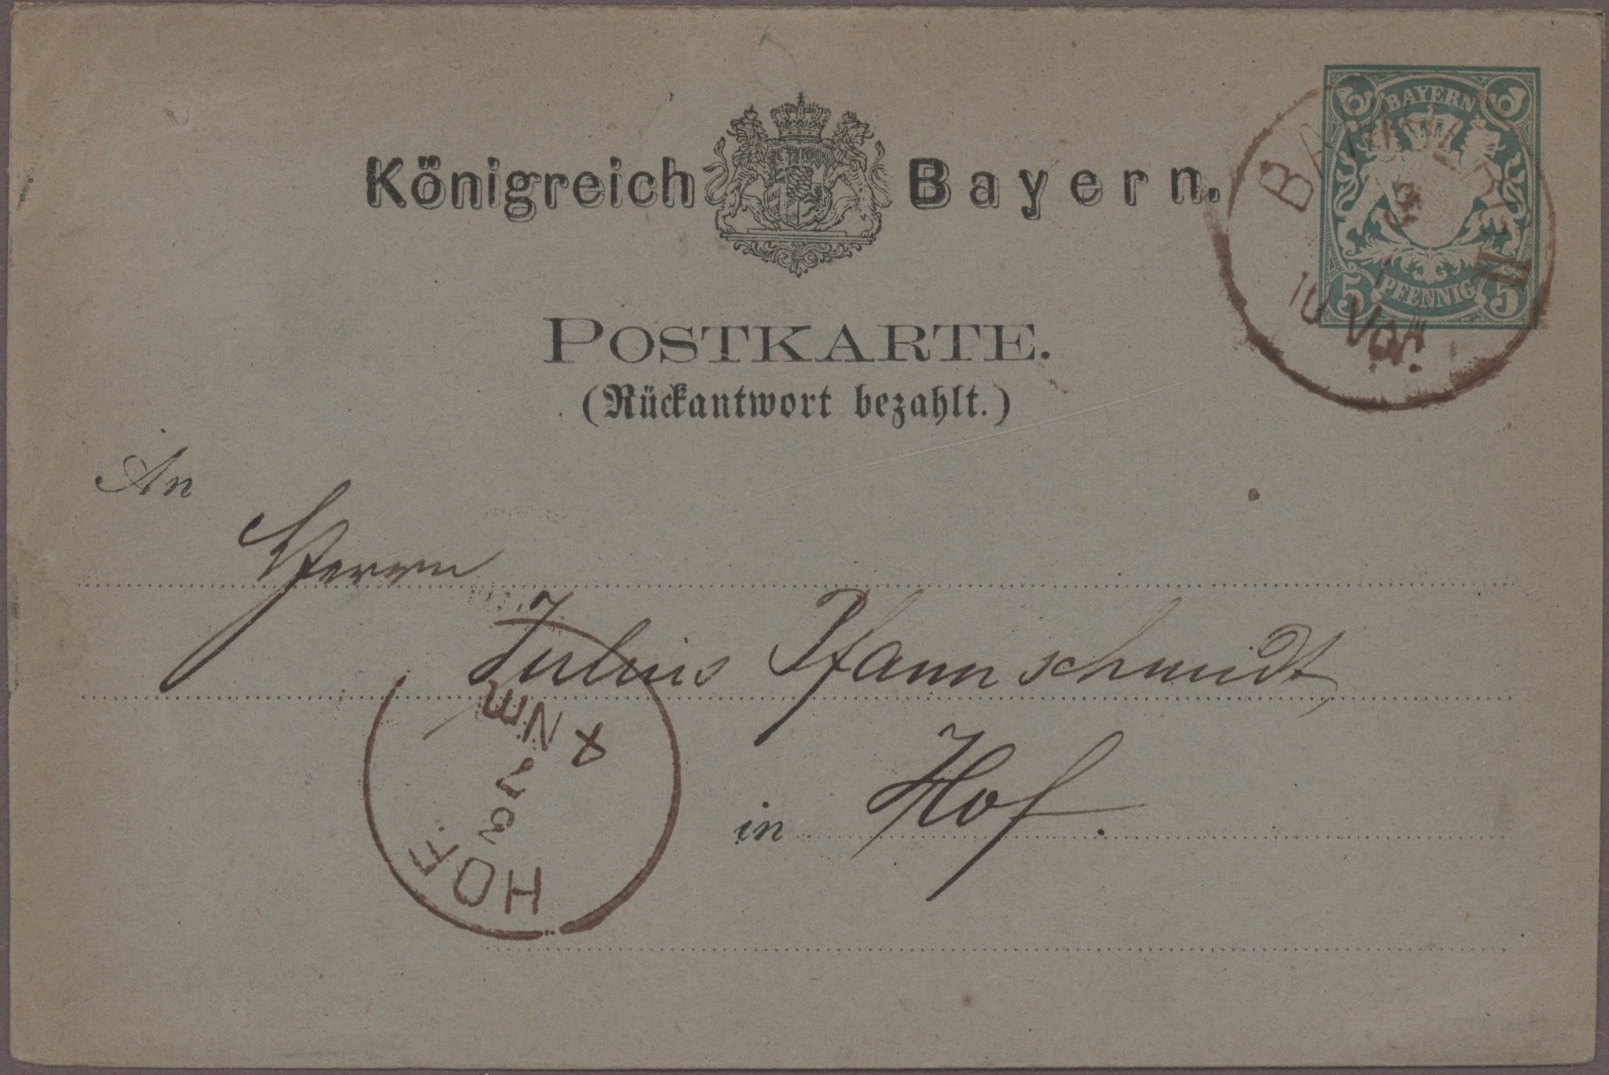 Königreich Bayern.
BAYERN
5 PFENNIG 5
10 Vor.
POSTKARTE.
(Rückantwort bezahlt.)
An
Herrn
Julius Pfannschmidt
in Hof.
HOF.
4 Nm